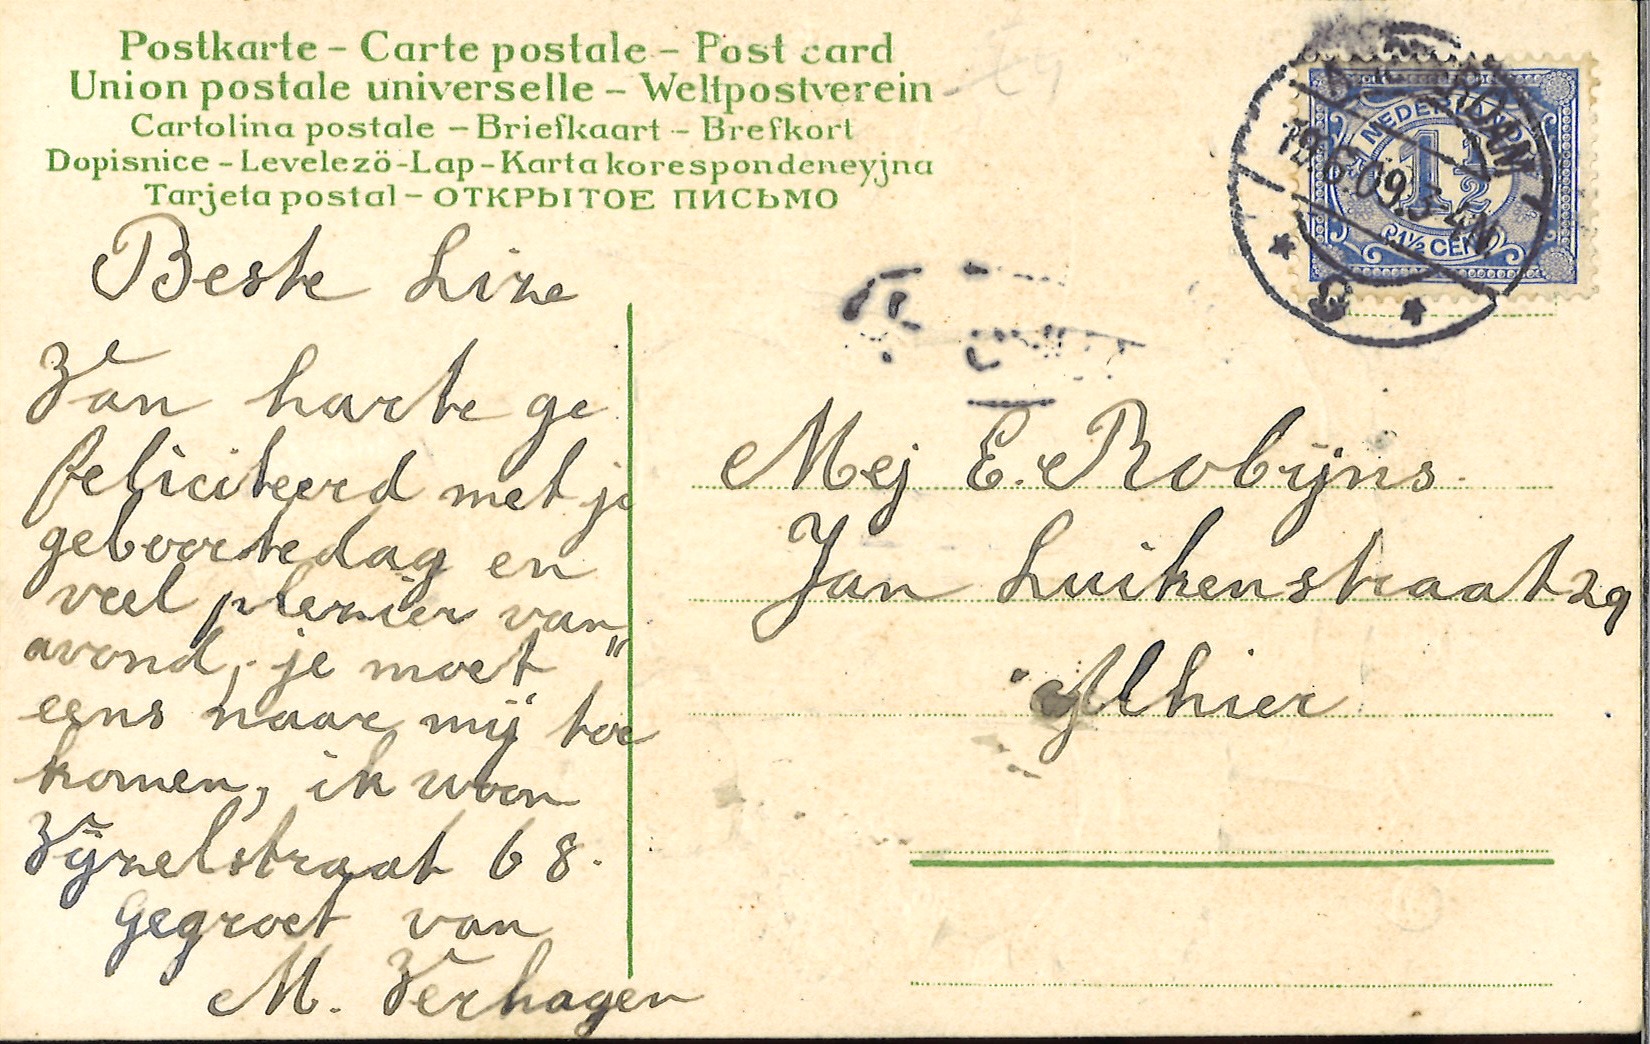 Postkarte – Carte postale – Post card
Union postale universelle – Weltpostverein
Cartolina postale – Briefkaart – Brefkort
Dopisnice – Levelezö-Lap – Karta korespondeneyjna
Tarjeta postal – ОТКРЫТОЕ ПИСЬМО
NEDERLAND
1½
1½ CENT
09.3-4N
8
Beste Lize
Van harte ge
feliciteerd met je
geboortedag en
veel plezier van
avond, je moet "
eens naar mij toe
komen, ik woon
Vijzelstraat 68.
Gegroet van
M. Verhagen
Mej E. Robijns.
Jan Luikenstraat 29
Alhier